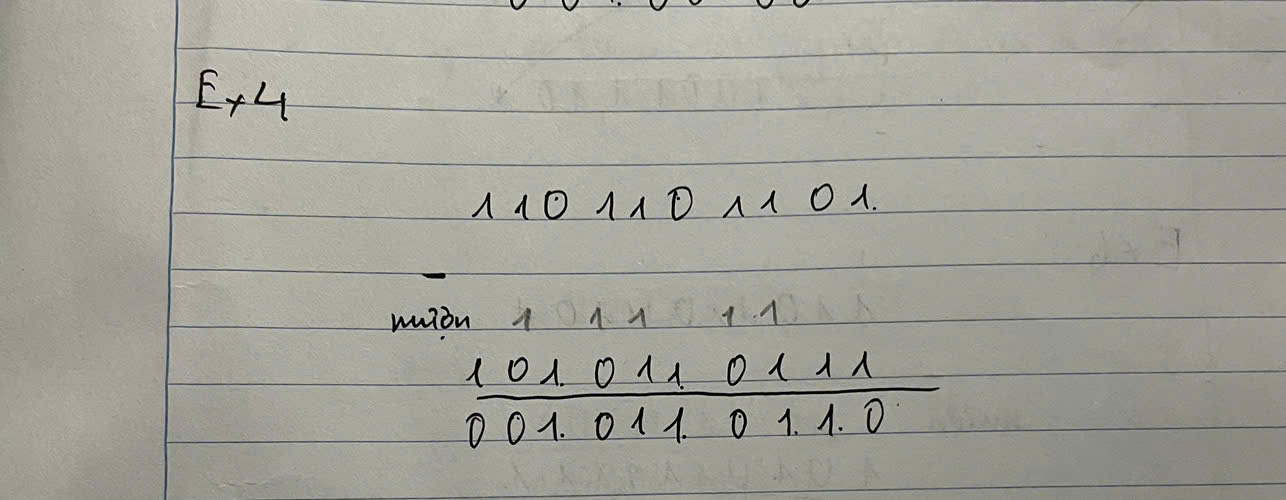 Ex4
1 1 0 1 1 0 1 1 0 1.
-
mượn 1 1 1 1.1
1 0 1. 0 1 1. 0 1 1 1
0 0 1. 0 1 1. 0 1. 1. 0